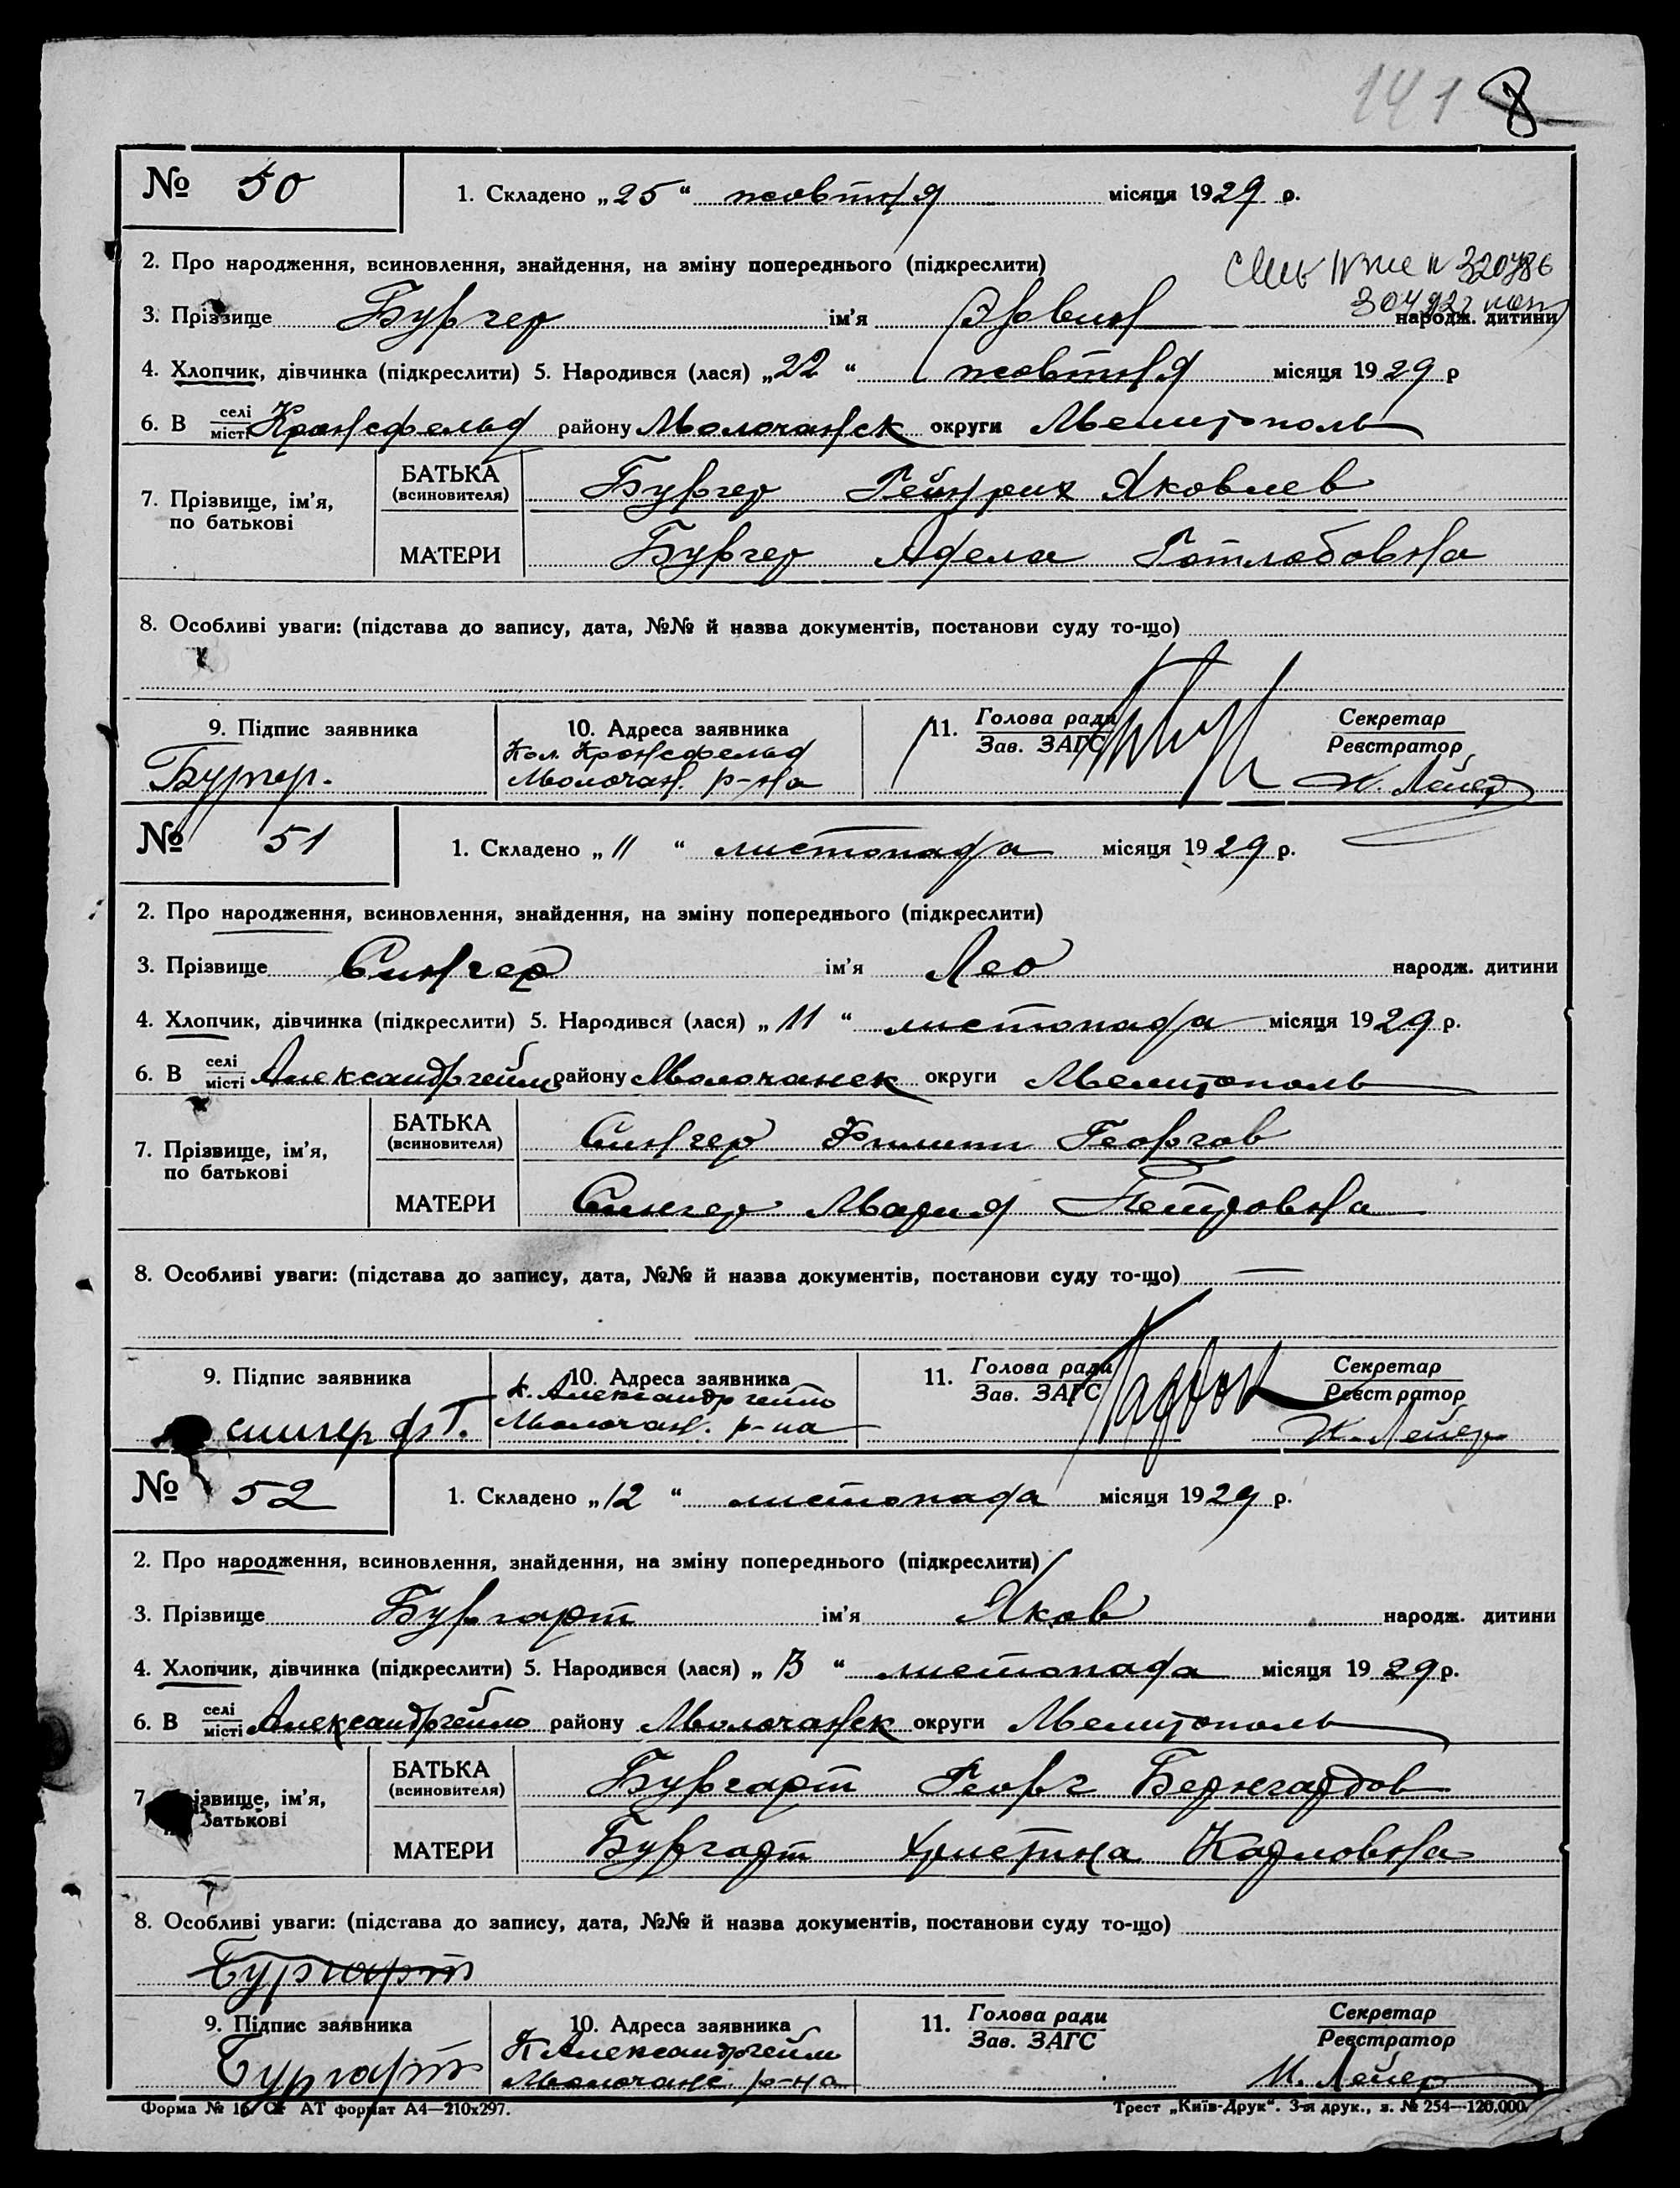 141 8
№ 50
1. Складено „25“ жовтня місяця 1929 р.
2. Про народження, всиновлення, знайдення, на зміну попереднього (підкреслити)
320786
3. Прізвище Бургер ім'я Эрвин народж. дитини
4. Хлопчик, дівчинка (підкреслити) 5. Народився (лася) „22“ жовтня місяця 1929 р
6. В селі місті Кронсфельд району Молочанск округи Мелитополь
7. Прізвище, ім'я, по батькові
БАТЬКА (всиновителя) Бургер Гейнрих Яковлев
МАТЕРИ Бургер Адела Готлобовна
8. Особливі уваги: (підстава до запису, дата, №№ й назва документів, постанови суду то-що)
9. Підпис заявника 10. Адреса заявника 11. Голова ради Зав. ЗАГС Секретар Реєстратор
Бургер. Кол. Кронсфельд
Молочан. р-на И. Лейер
№ 51
1. Складено „11“ листопада місяця 1929 р.
2. Про народження, всиновлення, знайдення, на зміну попереднього (підкреслити)
3. Прізвище Сингер ім'я Лео народж. дитини
4. Хлопчик, дівчинка (підкреслити) 5. Народився (лася) „11“ листопада місяця 1929 р.
6. В селі місті Александргейм району Молочанск округи Мелитополь
7. Прізвище, ім'я, по батькові
БАТЬКА (всиновителя) Сингер Филипп Георгов
МАТЕРИ Сингер Мария Петровна
8. Особливі уваги: (підстава до запису, дата, №№ й назва документів, постанови суду то-що) —
9. Підпис заявника 10. Адреса заявника 11. Голова ради Зав. ЗАГС Секретар Реєстратор
к. Александргейм
сингер ф Г. Молочан. р-на И. Лейер
№ 52
1. Складено „12“ листопада місяця 1929 р.
2. Про народження, всиновлення, знайдення, на зміну попереднього (підкреслити)
3. Прізвище Бургарт ім'я Яков народж. дитини
4. Хлопчик, дівчинка (підкреслити) 5. Народився (лася) „ “ листопада місяця 1929 р.
6. В селі місті Александргейм району Молочанск округи Мелитополь
7. Прізвище, ім'я, по батькові
БАТЬКА (всиновителя) Бургарт Георг Бернгардов
МАТЕРИ Бургарт Христина Карловна
8. Особливі уваги: (підстава до запису, дата, №№ й назва документів, постанови суду то-що)
Бургарт
9. Підпис заявника 10. Адреса заявника 11. Голова ради Зав. ЗАГС Секретар Реєстратор
К Александргейм
Бургарт Молочанс. р-на И. Лейер
Форма № 16. Ст АТ формат А4—210х297. Трест „Київ-Друк“. 3-я друк., з. № 254—120.000